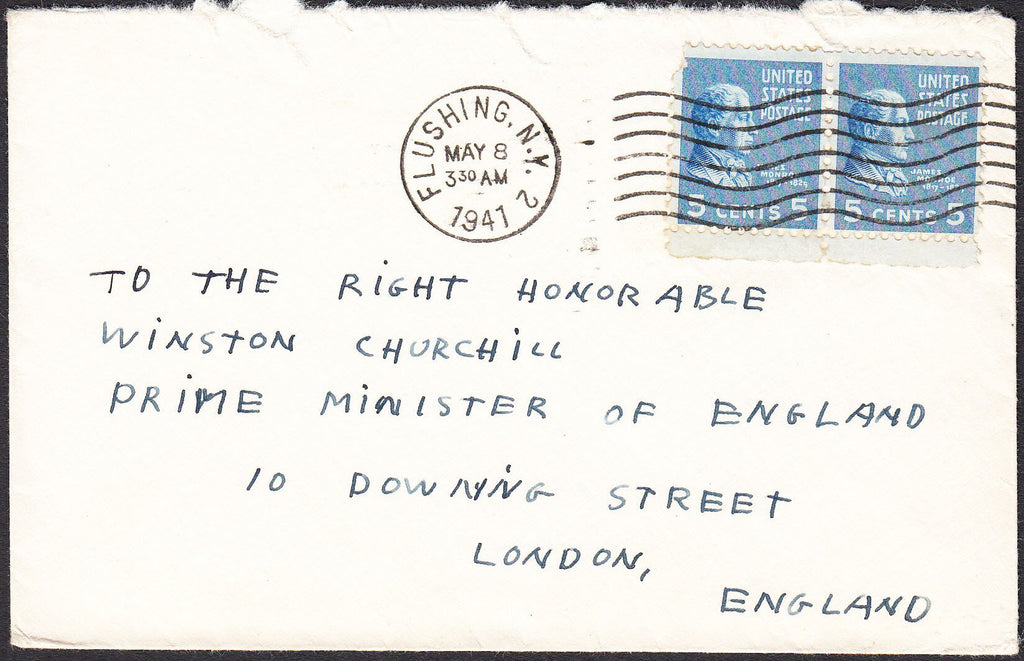 FLUSHING, N.Y. 2
MAY 8
3 30 AM
1941
UNITED
STATES
POSTAGE
MONRO
5 CENTS 5
UNITED
STATES
POSTAGE
JAMES
MONROE
5 CENTS 5
TO THE RIGHT HONORABLE
WINSTON CHURCHILL
PRIME MINISTER OF ENGLAND
10 DOWNING STREET
LONDON,
ENGLAND